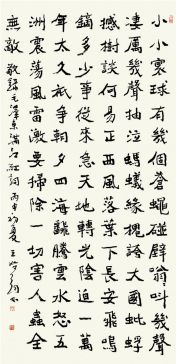 小小寰球有幾個蒼蠅碰壁嗡嗡叫幾聲
凄厲幾聲抽泣螞蟻緣槐誇大國蚍蜉
撼樹談何易正西風落葉下長安飛鳴
鏑多少事從來急天地轉光陰迫一萬
年太久只爭朝夕四海翻騰雲水怒五
洲震蕩風雷激要掃除一切害人蟲全
無敵 敬錄毛澤東滿江紅詞 丙申初夏 王